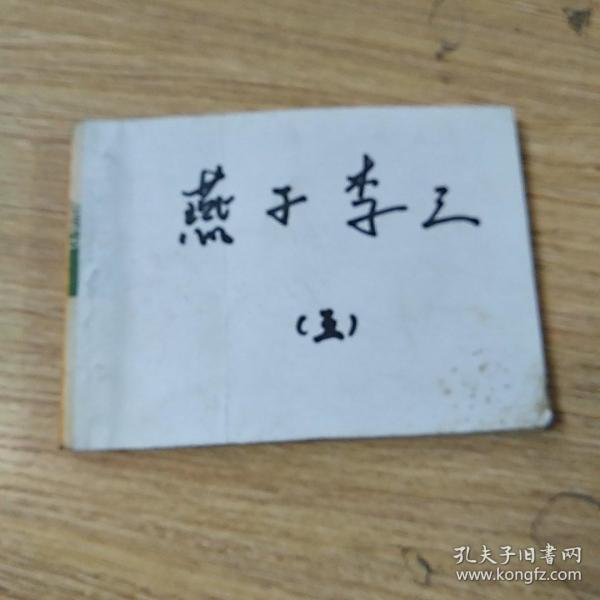 燕子李三
（五）
孔夫子旧書网
www.kongfz.com